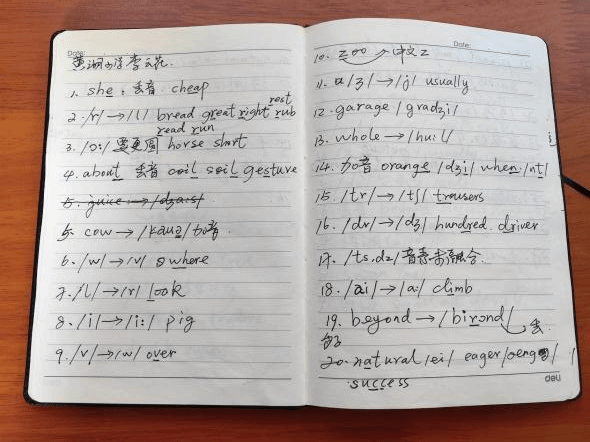 Date:
黄湖小学 李云花
1. she, 丢音 cheap
2. /r/→/l/ bread great right rest rub
read run
3. /ɔ:/ 要更圆 horse short
4. about 丢音 coil soil gesture
5. juice → /dʒa:s/
5. cow → /kauə/ 加音
6. /w/→/v/ where
7. /l/→/r/ look
8. /i/→/i:/ pig
9. /v/→/w/ over
Date:
10. zoo → 中文z
11. /ʒ/→/j/ usually
12. garage /gradʒi/
13. whole → /hu:l/
14. 加音 orange /dʒi/ when /nt/
15. /tr/→/tʃ/ trousers
16. /dr/→/dʒ/ hundred driver
17. /ts, dz/ 音素未融合.
18. /ai/→/a:/ climb
19. beyond → /birond/ 丢
20. natural /ei/ eager
success
deli